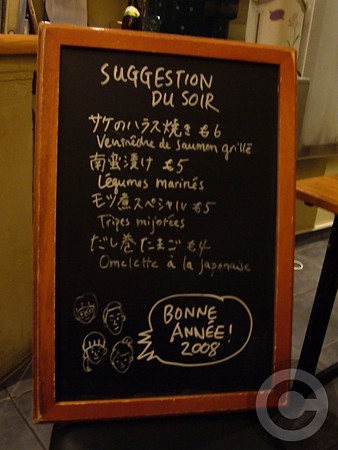 SUGGESTION
DU SOIR
サケのハラス焼き €6
Ventrêche de saumon grillé
南蛮漬け €5
Légumes marinés
モツ煮スペシャル €5
Tripes mijotées
だし巻たまご €4
Omelette à la japonaise
BONNE
ANNÉE!
2008
C